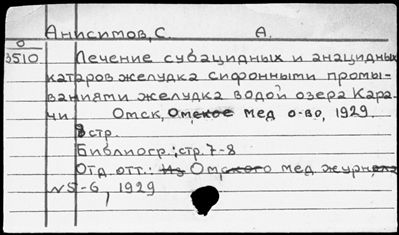 Анисимов, С. А.
0
3510 Лечение субацидных и анацидных
катаров желудка сифонными промы-
ваниями желудка водой озера Кара-
чи. Омск, Омское мед о-во, 1929.
8 стр.
Библиогр.: стр. 7-8
Отд. отт.: Из Омского мед. журнала
№5-6, 1929